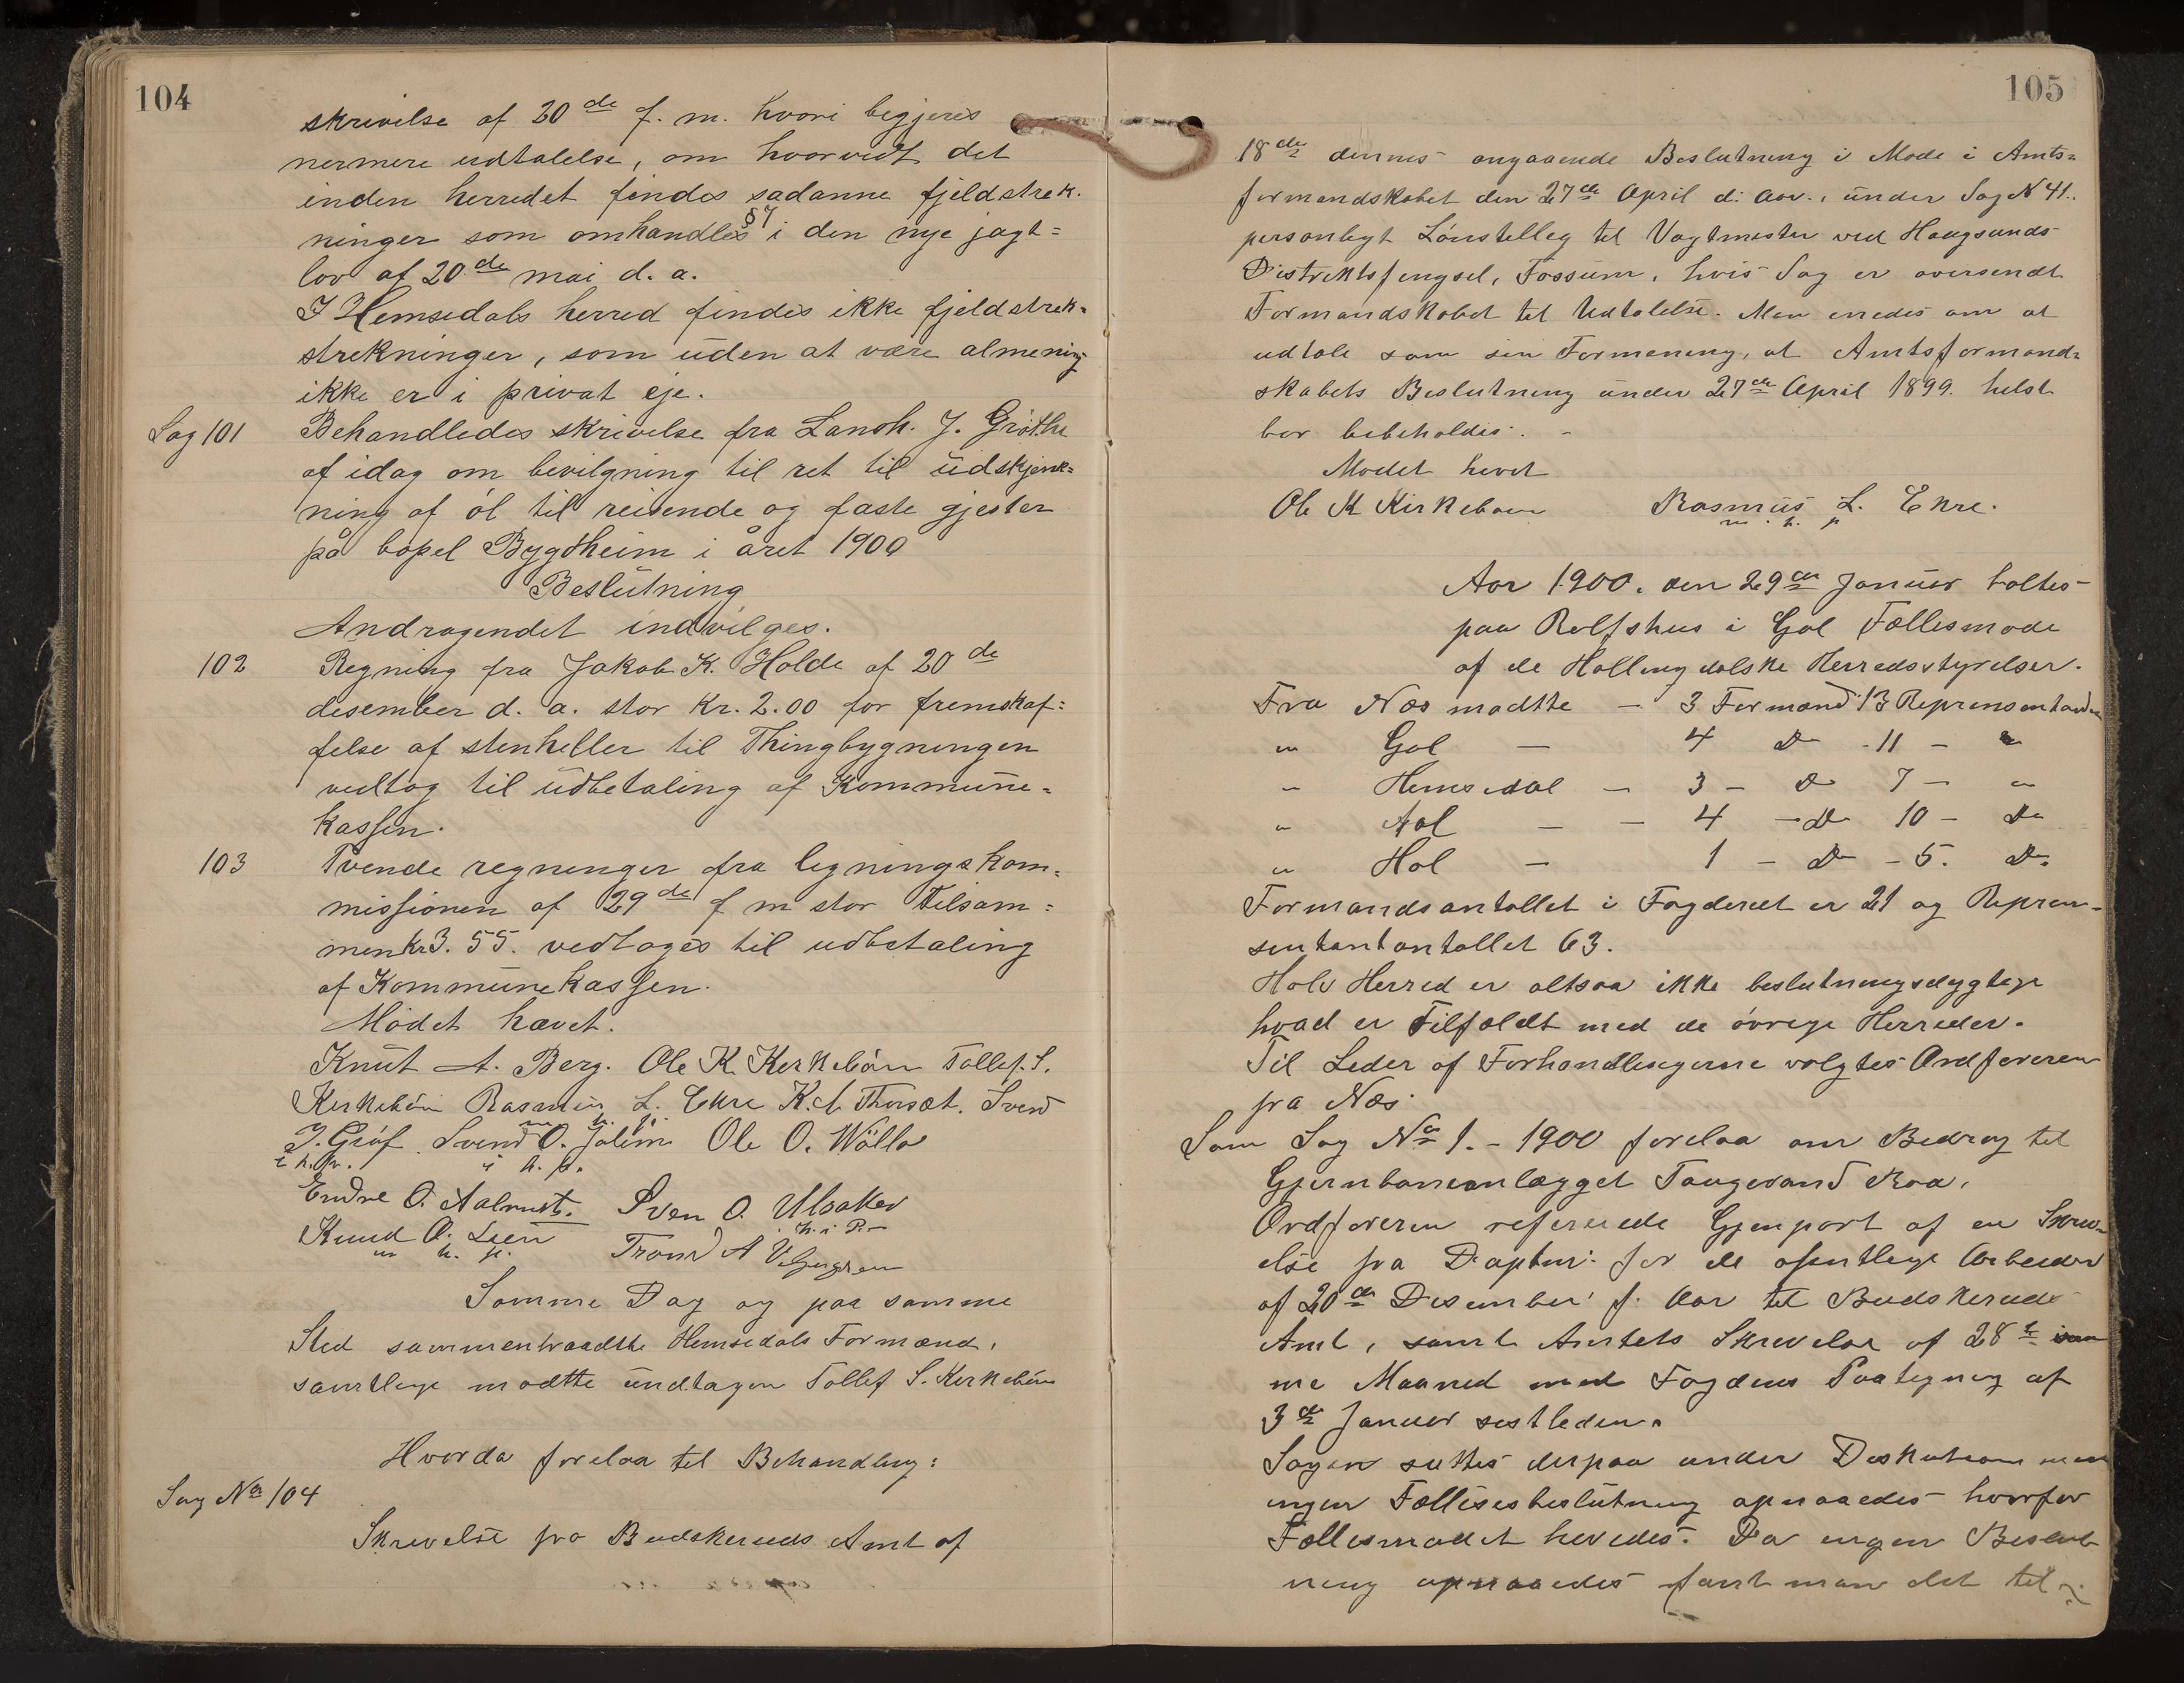 104
skrivelse af 20de f. m. hvori begjeres
nermere udtalelse, om hvorvidt det
inden herredet findes sadanne fjeldstrek.
ninger som omhandles §7 i den nye jagt=
lov af 20de mai d. a.
I Hemsedals herred findes ikke fjeldstrek=
strekninger, som uden at være almening
ikke er i privat eje.
Sag 101 Behandledes skrivelse fra Landh. J. Grøthe
af idag om bevilgning til ret til udskjenk=
ning af øl til reisende og faste gjester
på bopel Bygdheim i året 1900
Beslutning
Andragendet indvilges.
102 Regning fra Jakob K. Holde af 20de
desember d. a. stor Kr. 2.00 for fremskaf=
felse af stenheller til Thingbygningen
vedtog til udbetaling af Kommune=
kassen.
103 Tvende regninger fra ligningskom=
missionen af 29de f m stor tilsam=
men kr 3.55. vedtages til udbetaling
af Kommunekassen.
Mødet hævet.
Knut A. Berg. Ole K. Kirkebøn Tollef. S.
Kirkebøn Rasmus L. Ekre K. Thorset. Svend
m. h. p.
J. Grøf. Svend O. Jolim Ole O. Wøllo
i h. p. i h. p.
Endre O. Aalrust. Sven O. Ulsaker
h. i P.
Knud O. Lien Trond A
m h. p.
Samme Dag og paa samme
Sted sammentraadte Hemsedals Formænd,
samtlige mødte undtagen Tollef S. Kirkebøn
Hvorda forelaa til Behandling:
Sag No 104
Skrivelse fra Buskeruds Amt af
105
18de dennes angaaende Beslutning i Møde i Amts=
formandskabet den 27de April d. Aar., under Sag N 41.
personligt Lønstilleg til Vagtmester ved Haugsunds
Distriktsfengsel, Fossum, hvis Sag er oversendt
Formandskabet til Udtalelse. Man enedes om at
udtale som sin Formening, at Amtsformand=
skabets Beslutning under 27de April 1899. helst
bør bibeholdes. -
Mødet hevet
Ole K Kirkebøn Rasmus L. Ekre.
m. h. p
Aar 1900. den 29de Januar holtes
paa Rolfshus i Gol Fællesmøde
af de Hallingdalske Herredsstyrelser.
Fra Næs mødtte - 3 Formænd 13 Reprensentanter
" Gol - 4 Do - 11 - "
" Hemsedal - 3 - Do 7 - "
" Aal - - 4 - Do 10 - Do
" Hol - 1 - Do - 5. Do.
Formandsantallet i Fogderiet er 21 og Repren-
sentantantallet 63.
Hols Herred er altsaa ikke beslutningsdygtige
hvad er Tilfældt med de øvrige Herreder.
Til Leder af Forhandlingerne valgtes Ordføreren
fra Næs.
Som Sag No 1. - 1900 forelaa om Bidrag til
Gjernbaneanlægget Taugevand Roa.
Ordføreren refererede Gjenpart af en Skriv-
else fra Dapten: for de ofentlige Arbeider
af 20de Desember f. Aar til Buskeruds
Amt, samt Amtets Skrivelse af 28de sam
me Maaned med Fogdens Paategning af
3de Januar sistleden.
Sagen sattes derpaa under Diskution men
ingen Fællesesbeslutning opnaaedes hvorfor
Fællesmødet hevedes. Da ingen Beslut
ning opnaaedes fant man det til